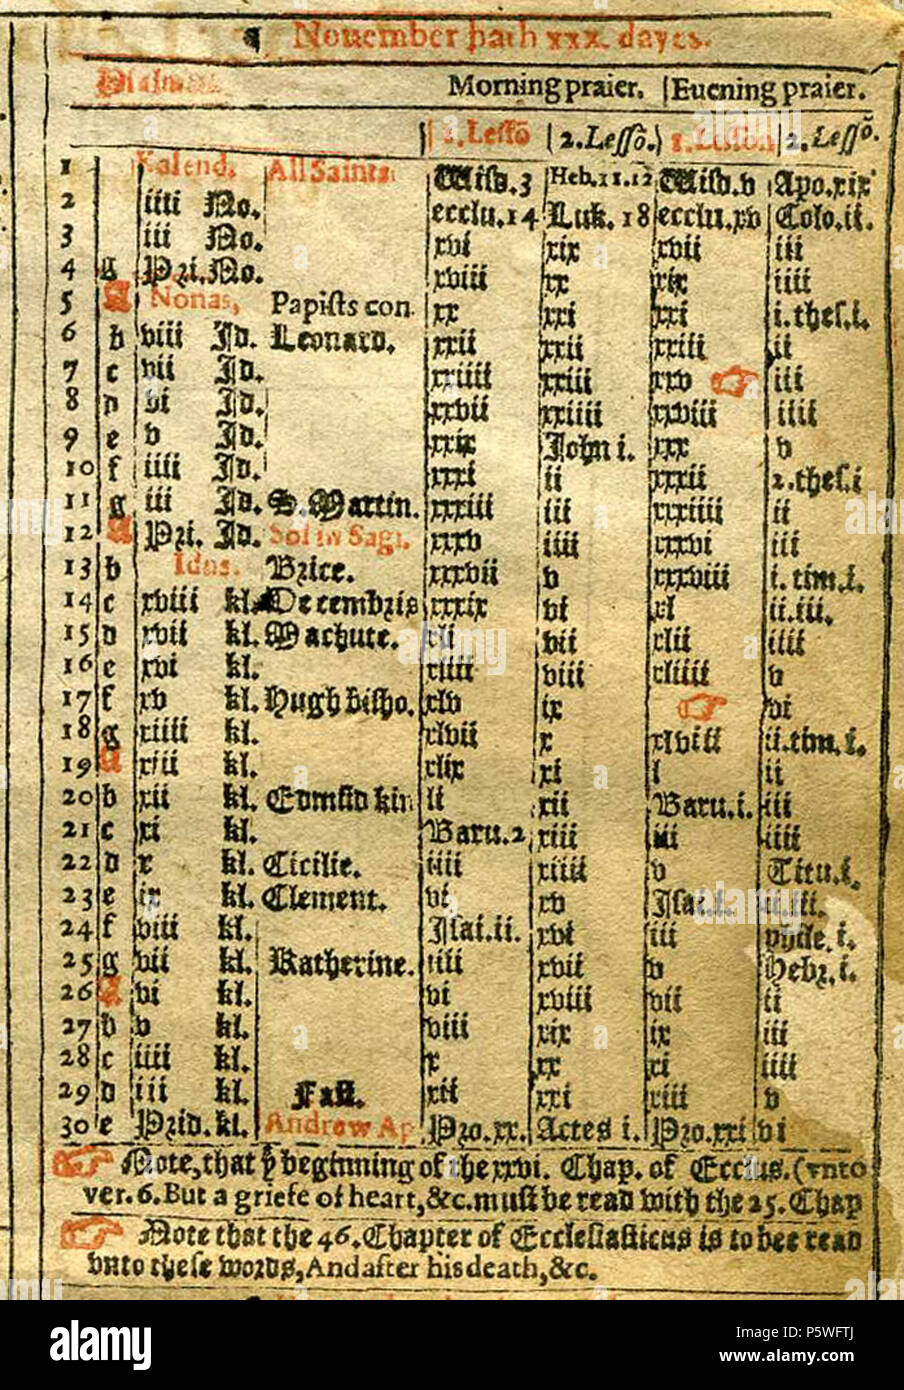 ¶ Nouember hath xxx. dayes.
Psalmes. Morning praier. Euening praier.
1.Lessō 2.Lessō. 1.Lesson 2.Lessō.
1 Kalend. All Saints Wisd.3 Heb.11.12 Wisd.v Apo.xix
2 iiii No. ecclu.14 Luk.18 ecclu.xv Colo.ii.
3 iii No. xvi xix xvii iii
4 g Pri.No. xviii xx xix iiii
5 A Nonas, Papists con. xx xxi xxi i.thes.i.
6 b viii Id. Leonard. xxii xxii xxiii ii
7 c vii Id. xxiiii xxiii xxv ☞ iii
8 d vi Id. xxvii xxiiii xxviii iiii
9 e v Id. xxix John i. xxx v
10 f iiii Id. xxxi ii xxxii 2.thes.i
11 g iii Id. S.Martin. xxxiii iii xxxiiii ii
12 A Pri. Id. Sol in Sagi. xxxv iiii xxxvi iii
13 b Idus. Brice. xxxvii v xxxviii i.tim.i.
14 c xviii kl. Decembris xxxix vi xl ii.iii.
15 d xvii kl. Machute. xli vii xlii iiii
16 e xvi kl. xliii viii xliiii v
17 f xv kl. Hugh bisho. xlv ix ☞ vi
18 g xiiii kl. xlvii x xlviii ii.tim.i.
19 A xiii kl. xlix xi l ii
20 b xii kl. Edmūd kin li xii Baru.i. iii
21 c xi kl. Baru.2 xiii iii iiii
22 d x kl. Cicilie. iiii xiiii v Titu.i.
23 e ix kl. Clement. vi xv Isai.i. ii.iii.
24 f viii kl. Isai.ii. xvi iii phile.i.
25 g vii kl. Katherine. iiii xvii v Hebr.i.
26 A vi kl. vi xviii vii ii
27 b v kl. viii xix ix iii
28 c iiii kl. x xx xi iiii
29 d iii kl. Fast. xii xxi xiii v
30 e Prid.kl. Andrew Ap Pro.xx. Actes i. Pro.xxi vi
☞ Note, that yͤ beginning of the xxvi. Chap. of Ecclus. (vnto
ver.6. But a griefe of heart, &c. must be read with the 25. Chap
☞ Note that the 46. Chapter of Ecclesiasticus is to bee read
vnto these words, And after his death, &c.
alamy
Image ID: P5WFTJ
www.alamy.com